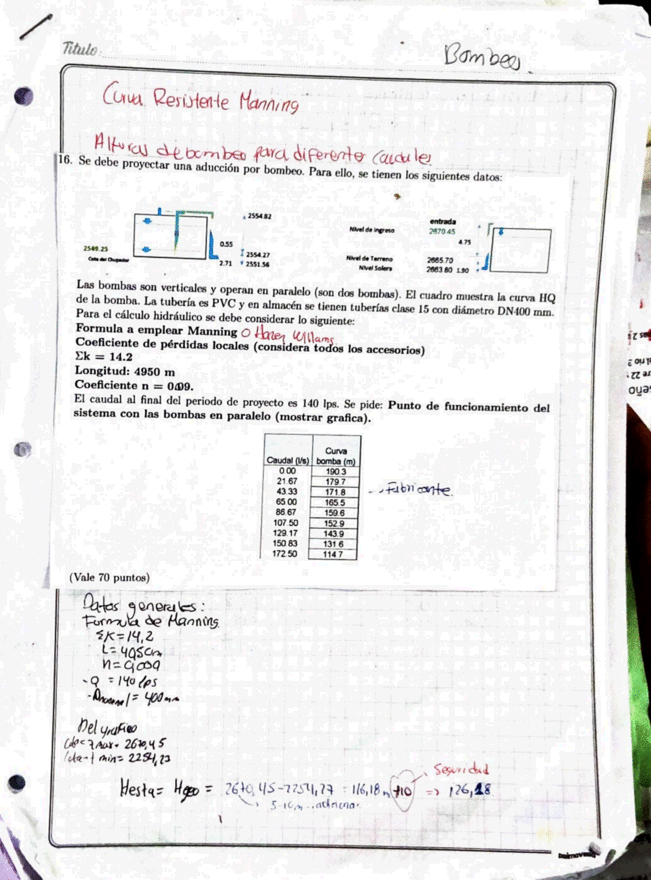 Título:
Bombeo.
Curva Resistente Manning
Alturas de bombeo para diferente Caudales
16. Se debe proyectar una aducción por bombeo. Para ello, se tienen los siguientes datos:
2554.82
2549.23
Cota del Chupador
0.55
2554.27
2.71
2551.56
entrada
Nivel de Ingreso
2670.45
4.75
Nivel de Terreno
2665.70
Nivel Solera
2663.80
1.90
Las bombas son verticales y operan en paralelo (son dos bombas). El cuadro muestra la curva HQ
de la bomba. La tubería es PVC y en almacén se tienen tuberías clase 15 con diámetro DN400 mm.
Para el cálculo hidráulico se debe considerar lo siguiente:
Formula a emplear Manning O Hazen Williams
Coeficiente de pérdidas locales (considera todos los accesorios)
Σk = 14.2
Longitud: 4950 m
Coeficiente n = 0.009.
El caudal al final del periodo de proyecto es 140 lps. Se pide: Punto de funcionamiento del
sistema con las bombas en paralelo (mostrar grafica).
Caudal (l/s) Curva bomba (m)
0.00 190.3
21.67 179.7
43.33 171.8
65.00 165.5
86.67 159.6
107.50 152.9
129.17 143.9
150.83 131.6
172.50 114.7
Fabricante.
(Vale 70 puntos)
Datos generales:
Formula de Manning
ΣK = 14,2
n = 0,009
- Q = 140 lps
= 400 mm
Del grafico
2670,45
min = 2254,27
Hesta = Hgeo = 2670,45 - 2254,27 = 116,18 m +10 => 126,18
Seguridad